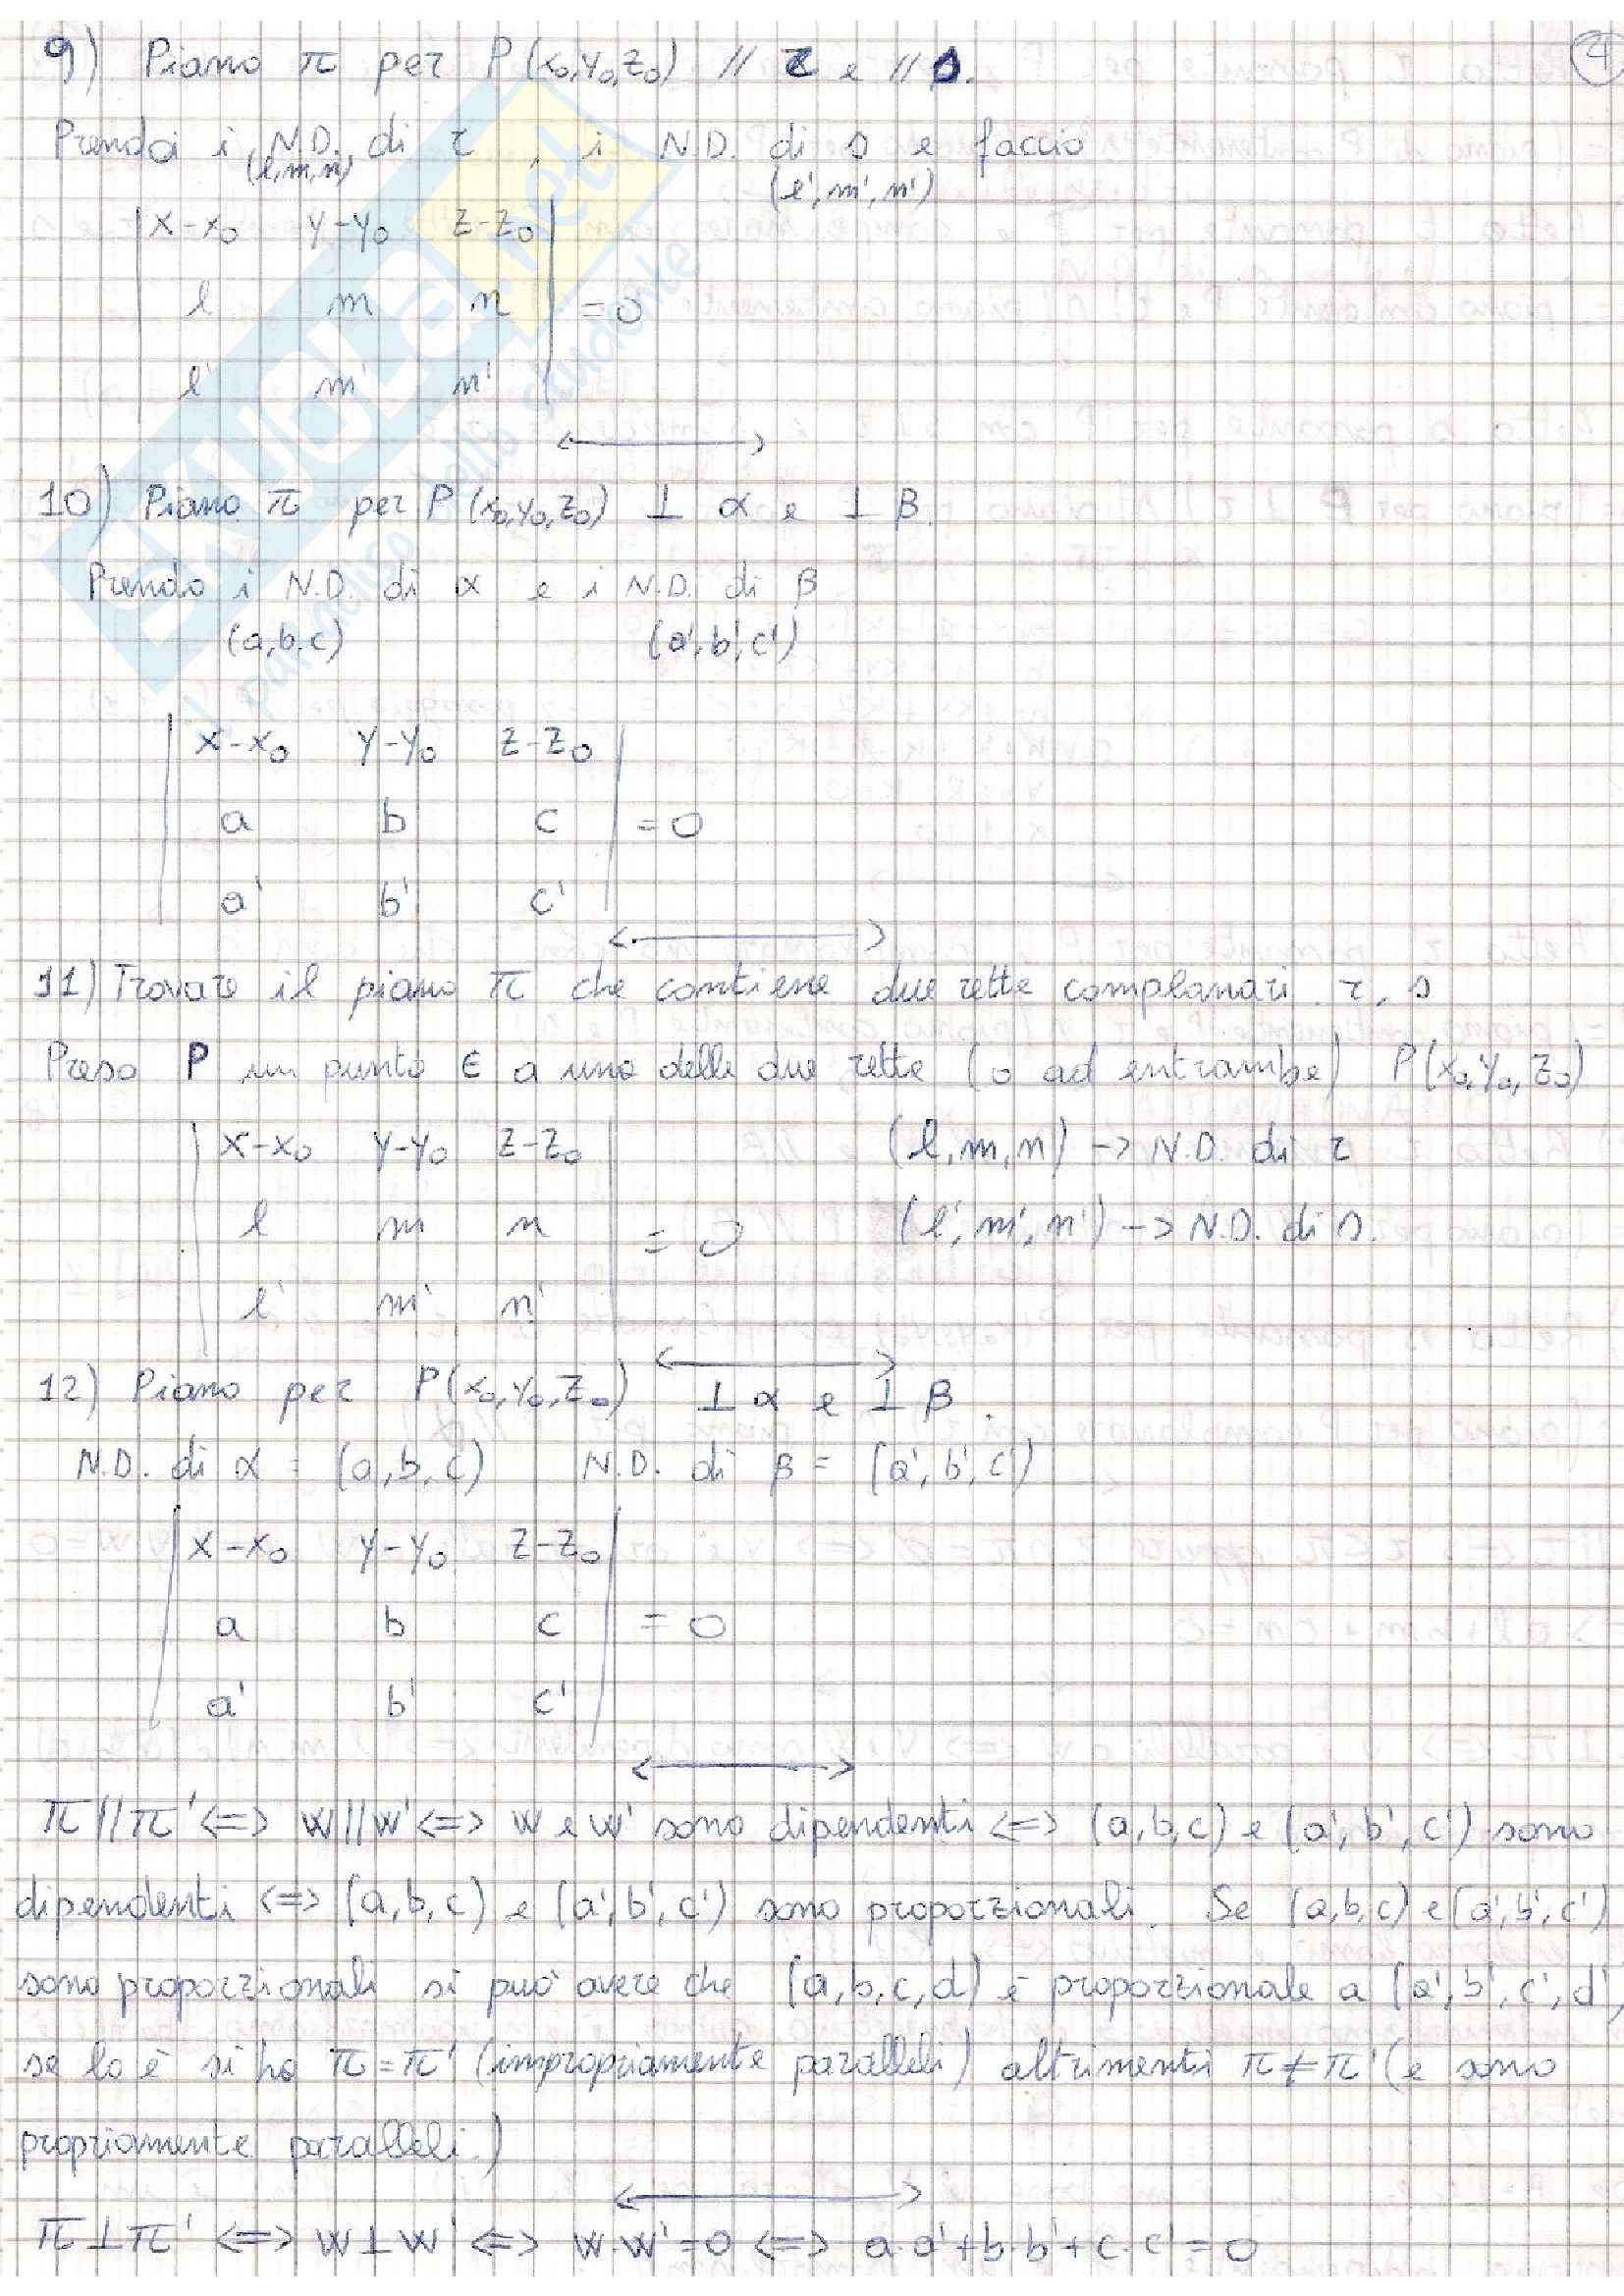 9) Piano π per P(x₀,y₀,z₀) // r e // s.
4
Prendo i N.D. di r, i N.D. di s e faccio
(l,m,n) (l',m',n')
| x-x₀ y-y₀ z-z₀ |
| l m n | = 0
| l' m' n' |
10) Piano π per P(x₀,y₀,z₀) ⊥ α e ⊥ β.
Prendo i N.D. di α e i N.D. di β
(a,b,c) (a',b',c')
| x-x₀ y-y₀ z-z₀ |
| a b c | = 0
| a' b' c' |
11) Trovare il piano π che contiene due rette complanari r, s
Preso P un punto ∈ a una delle due rette (o ad entrambe) P(x₀,y₀,z₀)
| x-x₀ y-y₀ z-z₀ | (l,m,n) -> N.D. di r
| l m n | = 0 (l',m',n') -> N.D. di s.
| l' m' n' |
12) Piano per P(x₀,y₀,z₀) ⊥ α e ⊥ β.
N.D. di α = (a,b,c) N.D. di β = (a',b',c')
| x-x₀ y-y₀ z-z₀ |
| a b c | = 0
| a' b' c' |
π//π' <=> w//w' <=> w e w' sono dipendenti <=> (a,b,c) e (a',b',c') sono
dipendenti <=> (a,b,c) e (a',b',c') sono proporzionali. Se (a,b,c) e (a',b',c')
sono proporzionali si può avere che (a,b,c,d) è proporzionale a (a',b',c',d',
se lo è si ha π=π' (impropriamente paralleli) altrimenti π≠π' (e sono
propriamente paralleli.)
π⊥π' <=> w⊥w' <=> w·w'=0 <=> a·a'+b·b'+c·c'=0
SKUOLA.net
il paradiso dello studente